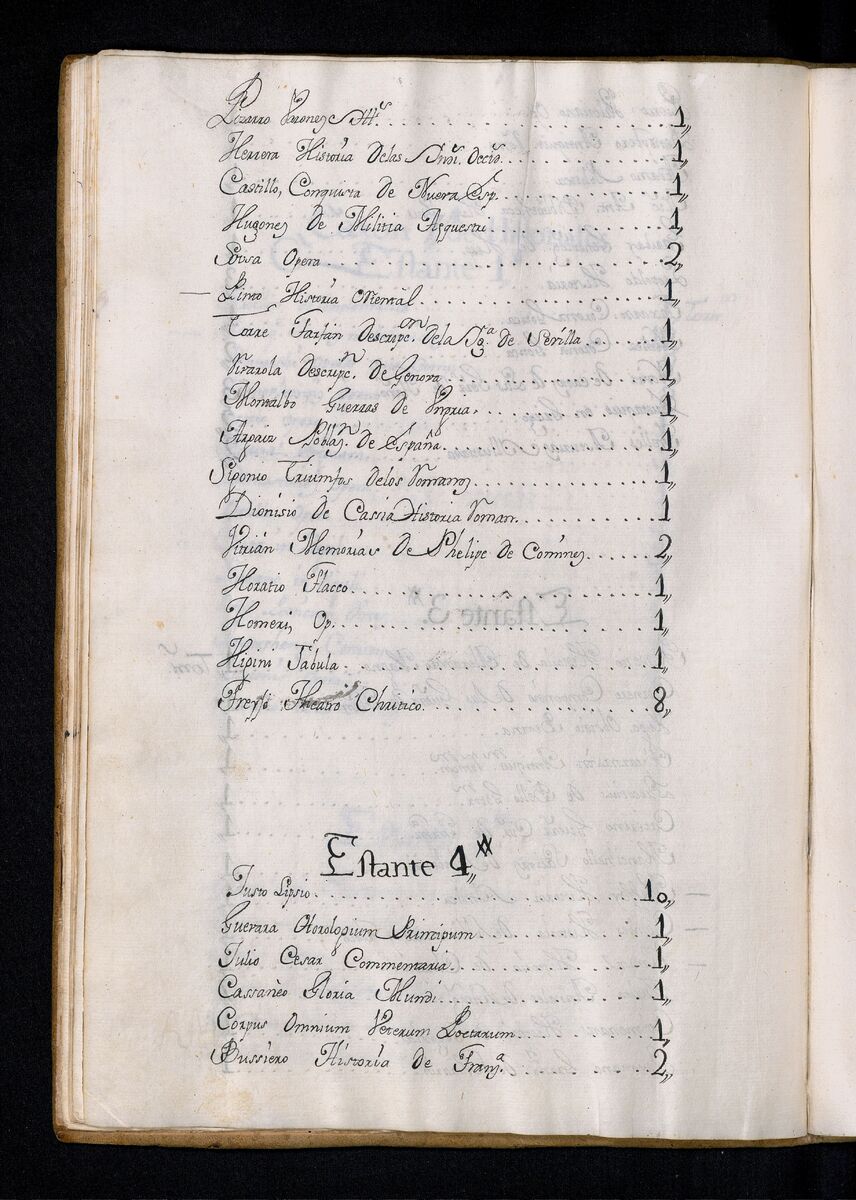 Pizarro Varones Ill.s . . . 1,,
Herrera Historia delas Ind.s Occid. . . . 1,,
Castillo, Conquista de Nueva Esp. . . . 1,,
Hugones de Militia Aequestri . . . 1,,
Sousa Opera . . . 2,,
— Pinto Historia Oriental . . . 1,,
Torre Farfán Descripc.on dela Sg.a de Sevilla . . . 1,,
Descripc.n de Genova . . . 1,,
Montalbo Guerras de Vngria . . . 1,,
Poblaz.n de España . . . 1,,
Siponio Triumfos delos Romanos . . . 1,,
Dionisio de Cassia Historia Roman. . . . 1
Vitrián Memorias de Phelipe de Comines . . . 2,,
Horatio Flacco . . . 1,,
Homeri, Op. . . . 1,,
Hipini Tabula . . . 1,,
Theatro Chritico . . . 8,,
Estante 4,,
Justo Lipsio . . . 10,,
Guevara Horologium Principum . . . 1,,
Julio Cesar Commentaria . . . 1,,
Cassaneo Gloria Mundi . . . 1,,
Corpus Omnium Veterum Poetarum . . . 1,,
Bussiero Historia de Franz.a . . . 2,,